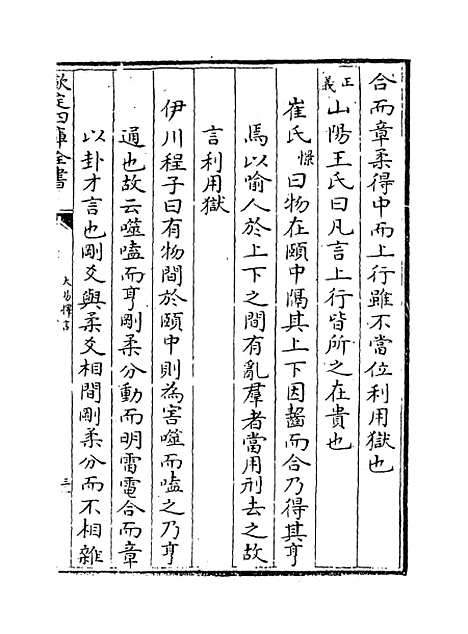 合而章柔得中而上行雖不當位利用獄也
正義
山陽王氏曰凡言上行皆所之在貴也
崔氏憬曰物在頤中隔其上下因齧而合乃得其亨
焉以喻人於上下之間有亂羣者當用刑去之故
言利用獄
伊川程子曰有物間於頤中則為害噬而嗑之乃亨
通也故云噬嗑而亨剛柔分動而明雷電合而章
以卦才言也剛爻與柔爻相間剛柔分而不相雜
欽定四庫全書
大易擇言
三